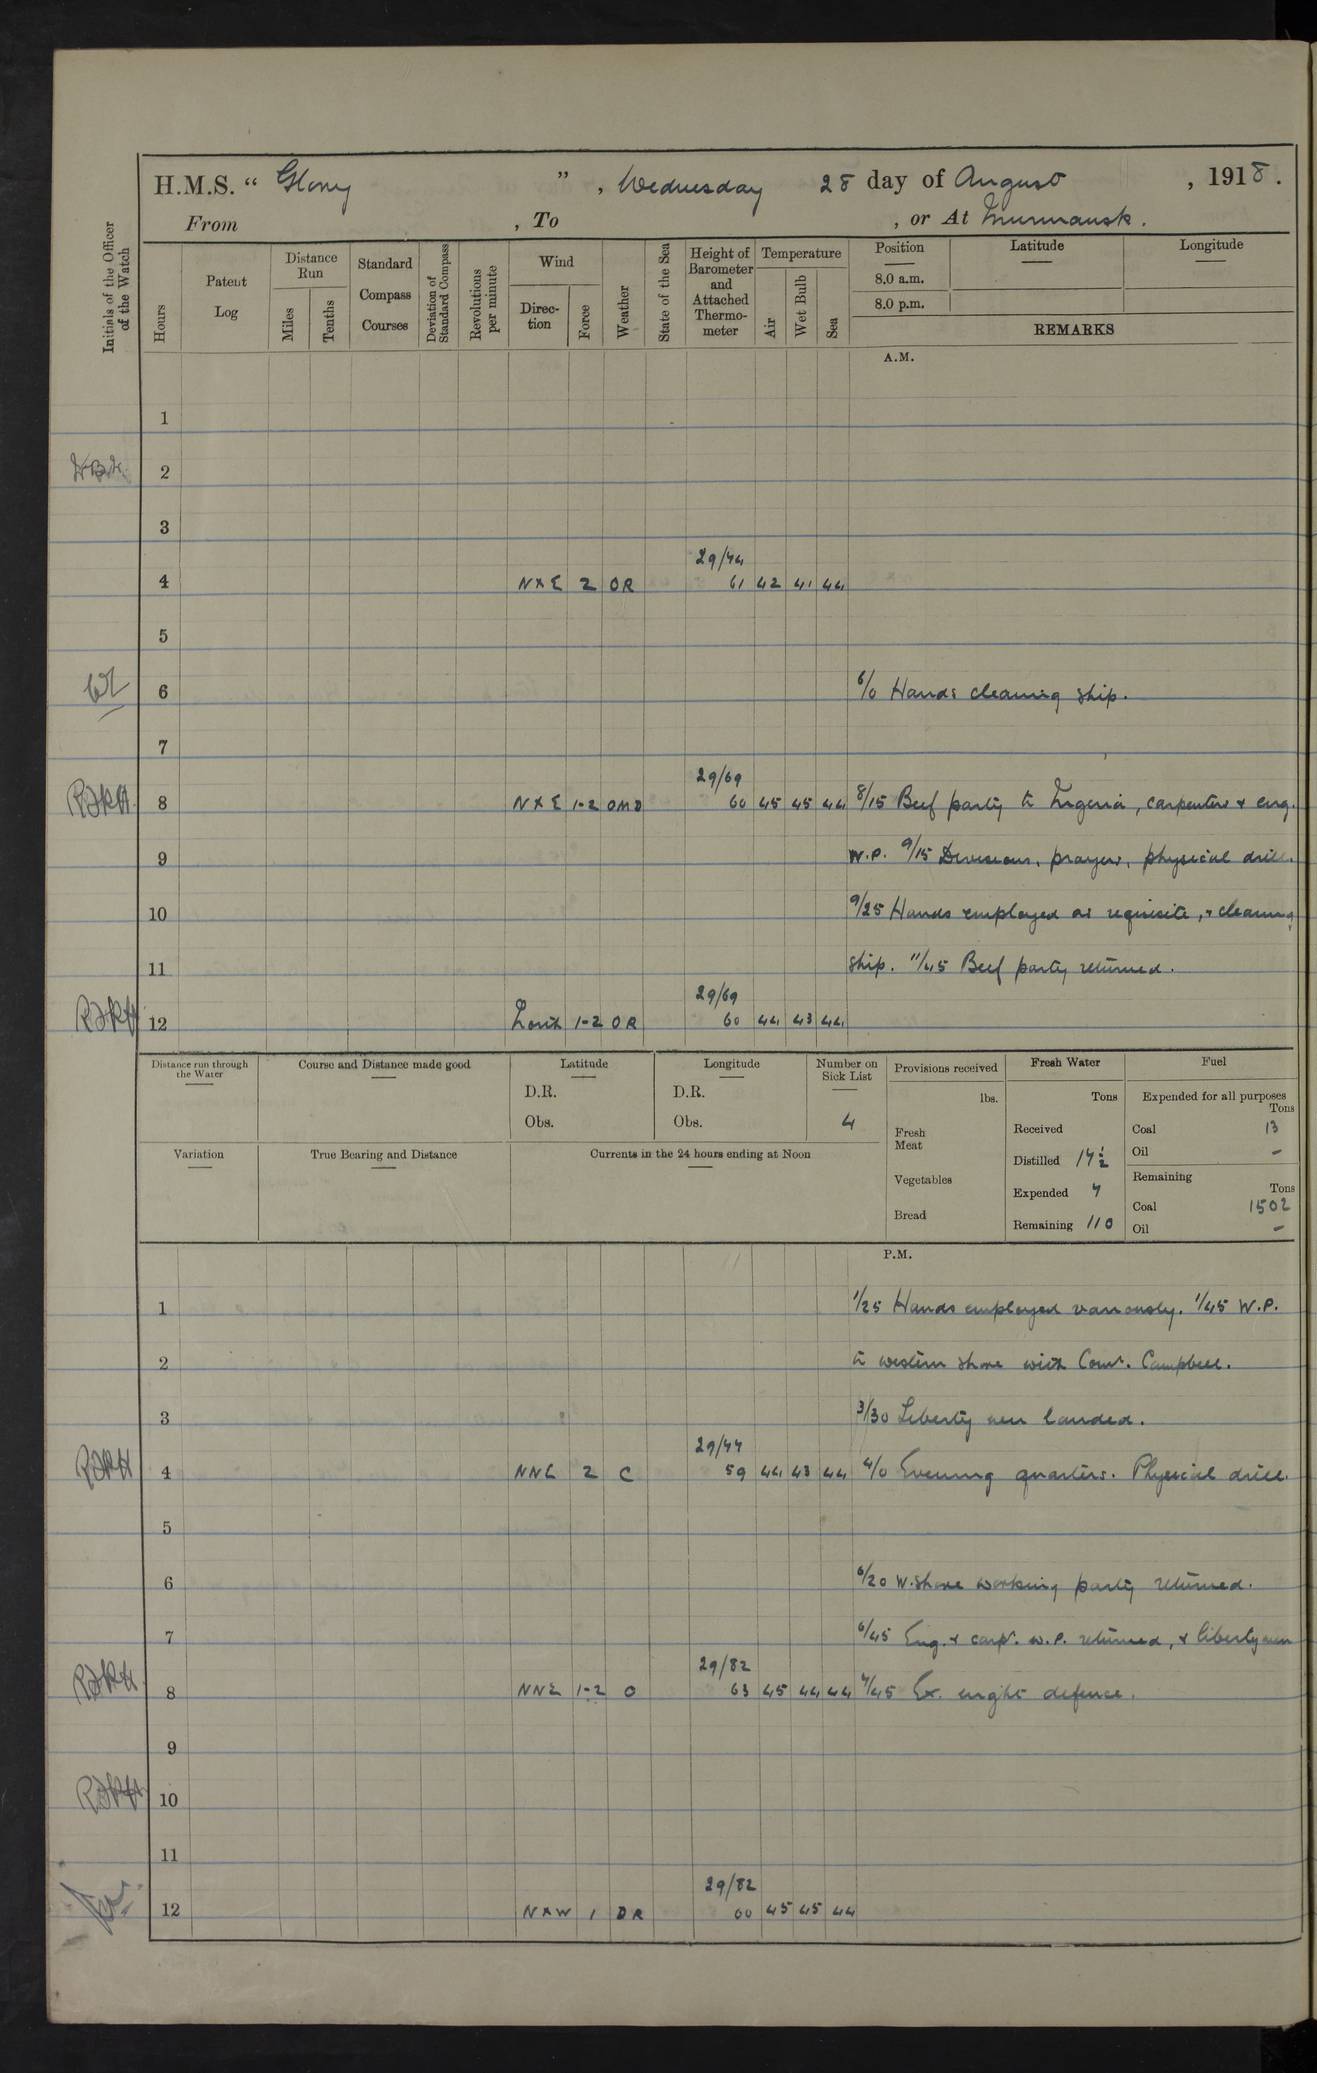 H.M.S. “ Glory ” , Wednesday 28 day of August , 1918.
From , To , or At Murmansk.
Initials of the Officer of the Watch
Hours
Patent Log
Distance Run
Miles
Tenths
Standard Compass Courses
Deviation of Standard Compass
Revolutions per minute
Wind
Direc-tion
Force
Weather
State of the Sea
Height of Barometer and Attached Thermo-meter
Temperature
Air
Wet Bulb
Sea
Position Latitude Longitude
8.0 a.m.
8.0 p.m.
REMARKS
A.M.
1
2
3
29/74
4 NXE 2 OR 61 42 41 44
5
6 6/0 Hands cleaning ship.
7
29/69
8 NXE 1-2 OMD 60 45 45 44 8/15 Beef party to Nigeria, carpenters & eng.
9 W.P. 9/15 Divisions, prayers, physical drill.
10 9/25 Hands employed as requisite, & cleaning
11 ship. 11/45 Beef party returned.
29/69
12 North 1-2 OR 60 44 43 44
Distance run through the Water
Course and Distance made good
Latitude
D.R.
Obs.
Longitude
D.R.
Obs.
Number on Sick List
4
Variation
True Bearing and Distance
Currents in the 24 hours ending at Noon
Provisions received
lbs.
Fresh Meat
Vegetables
Bread
Fresh Water
Tons
Received
Distilled 17½
Expended 7
Remaining 110
Fuel
Expended for all purposes
Tons
Coal 13
Oil –
Remaining
Tons
Coal 1502
Oil –
P.M.
1 1/25 Hands employed variously. 1/45 W.P.
2 to western shore with Comr. Campbell.
3 3/30 Liberty men landed.
29/77
4 NNE 2 C 59 44 43 44 4/0 Evening quarters. Physical drill.
5
6 6/20 W.shore working party returned.
7 6/45 Eng. & carpr. w.p. returned, & liberty men
29/82
8 NNE 1-2 O 63 45 44 44 7/45 Ex. night defence.
9
10
11
29/82
12 NXW 1 DR 60 45 45 44